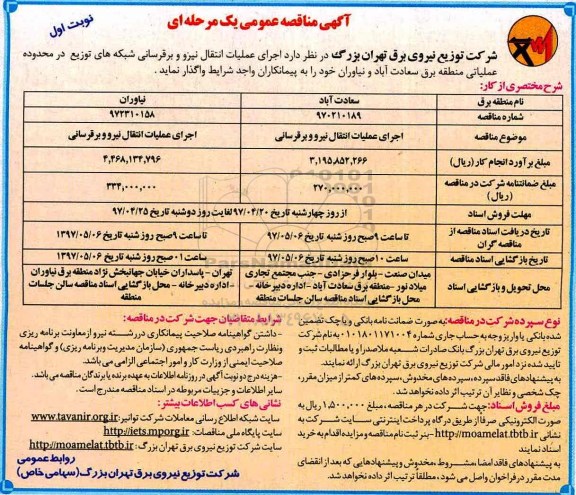 آگهی مناقصه عمومی یک مرحله ای
نوبت اول
شرکت توزیع نیروی برق تهران بزرگ در نظر دارد اجرای عملیات انتقال نیرو و برقرسانی شبکه های توزیع در محدوده
عملیاتی منطقه برق سعادت آباد و نیاوران خود را به پیمانکاران واجد شرایط واگذار نماید .
شرح مختصری از کار:
نام منطقه برق سعادت آباد نیاوران
شماره مناقصه ۹۷۰۲۱۰۱۸۹ ۹۷۲۳۱۰۱۵۸
موضوع مناقصه اجرای عملیات انتقال نیرو و برقرسانی اجرای عملیات انتقال نیرو و برقرسانی
مبلغ برآورد انجام کار (ریال) ۳,۱۹۵,۸۵۲,۲۶۶ ۴,۴۶۸,۱۳۴,۷۹۶
مبلغ ضمانتنامه شرکت در مناقصه (ریال) ۲۷۰,۰۰۰,۰۰۰ ۳۳۴,۰۰۰,۰۰۰
مهلت فروش اسناد از روز چهارشنبه تاریخ ۹۷/۰۴/۲۰ لغایت روز دوشنبه تاریخ ۹۷/۰۴/۲۵
تاریخ دریافت اسناد مناقصه از مناقصه گران تا ساعت ۹ صبح روز شنبه تاریخ ۹۷/۰۵/۰۶ تا ساعت ۹ صبح روز شنبه تاریخ ۱۳۹۷/۰۵/۰۶
تاریخ بازگشایی اسناد مناقصه ساعت ۱۰ صبح روز شنبه تاریخ ۹۷/۰۵/۰۶ ساعت ۱۰ صبح روز شنبه تاریخ ۱۳۹۷/۰۵/۰۶
محل تحویل و بازگشایی اسناد میدان صنعت - بلوار فرحزادی - جنب مجتمع تجاری میلاد نور - منطقه برق سعادت آباد - اداره دبیرخانه - محل بازگشایی اسناد مناقصه سالن جلسات منطقه تهران - پاسداران خیابان جهانبخش نژاد منطقه برق نیاوران - اداره دبیرخانه - محل بازگشایی اسناد مناقصه سالن جلسات منطقه
نوع سپرده شرکت در مناقصه: به صورت ضمانت نامه بانکی و یا چک تضمین
شده بانکی یا واریز وجه به حساب جاری شماره ۰۱۰۱۸۰۱۱۷۱۰۰۴ به نام شرکت
توزیع نیروی برق تهران بزرگ بانک صادرات شعبه ملاصدرا و یا مطالبات ثبت و
تایید شده نزد امور مالی شرکت توزیع نیروی برق تهران بزرگ ارائه نمایند.
به پیشنهادهای فاقد سپرده، سپرده‌های مخدوش، سپرده‌های کمتر از میزان مقرر،
چک شخصی و نظایر آن ترتیب اثر داده نخواهد شد.
مبلغ فروش اسناد: جهت شرکت در هر مناقصه، مبلغ ۱,۵۰۰,۰۰۰ ریال به
صورت الکترونیکی صرفا از طریق درگاه پرداخت اینترنتی سایت شرکت به
نشانی http://moamelat.tbtb.ir - بنر ثبت نام مناقصه و مزایده اقدام به خرید
اسناد نمایند
به پیشنهادهای فاقد امضا، مشروط، مخدوش و پیشنهادهایی که بعد از انقضای
مدت مقرر در فراخوان واصل می شود، مطلقا ترتیب اثر داده نخواهد شد.
شرایط متقاضیان جهت شرکت در مناقصه:
- داشتن گواهینامه صلاحیت پیمانکاری در رشته نیرو از معاونت برنامه ریزی
و نظارت راهبردی ریاست جمهوری (سازمان مدیریت و برنامه ریزی) و گواهینامه
صلاحیت ایمنی از وزارت کار و امور اجتماعی الزامی می باشد.
- هزینه درج دو نوبت آگهی در روزنامه اطلاعات به عهده برنده یا برندگان مناقصه می باشد.
سایر اطلاعات و جزییات مربوطه در اسناد مناقصه مندرج است.
نشانی های کسب اطلاعات بیشتر:
سایت شبکه اطلاع رسانی معاملات شرکت توانیر: www.tavanir.org.ir
سایت پایگاه ملی مناقصات: http://iets.mporg.ir
سایت شرکت توزیع نیروی برق تهران بزرگ: http://moamelat.tbtb.ir
روابط عمومی
شرکت توزیع نیروی برق تهران بزرگ (سهامی خاص)